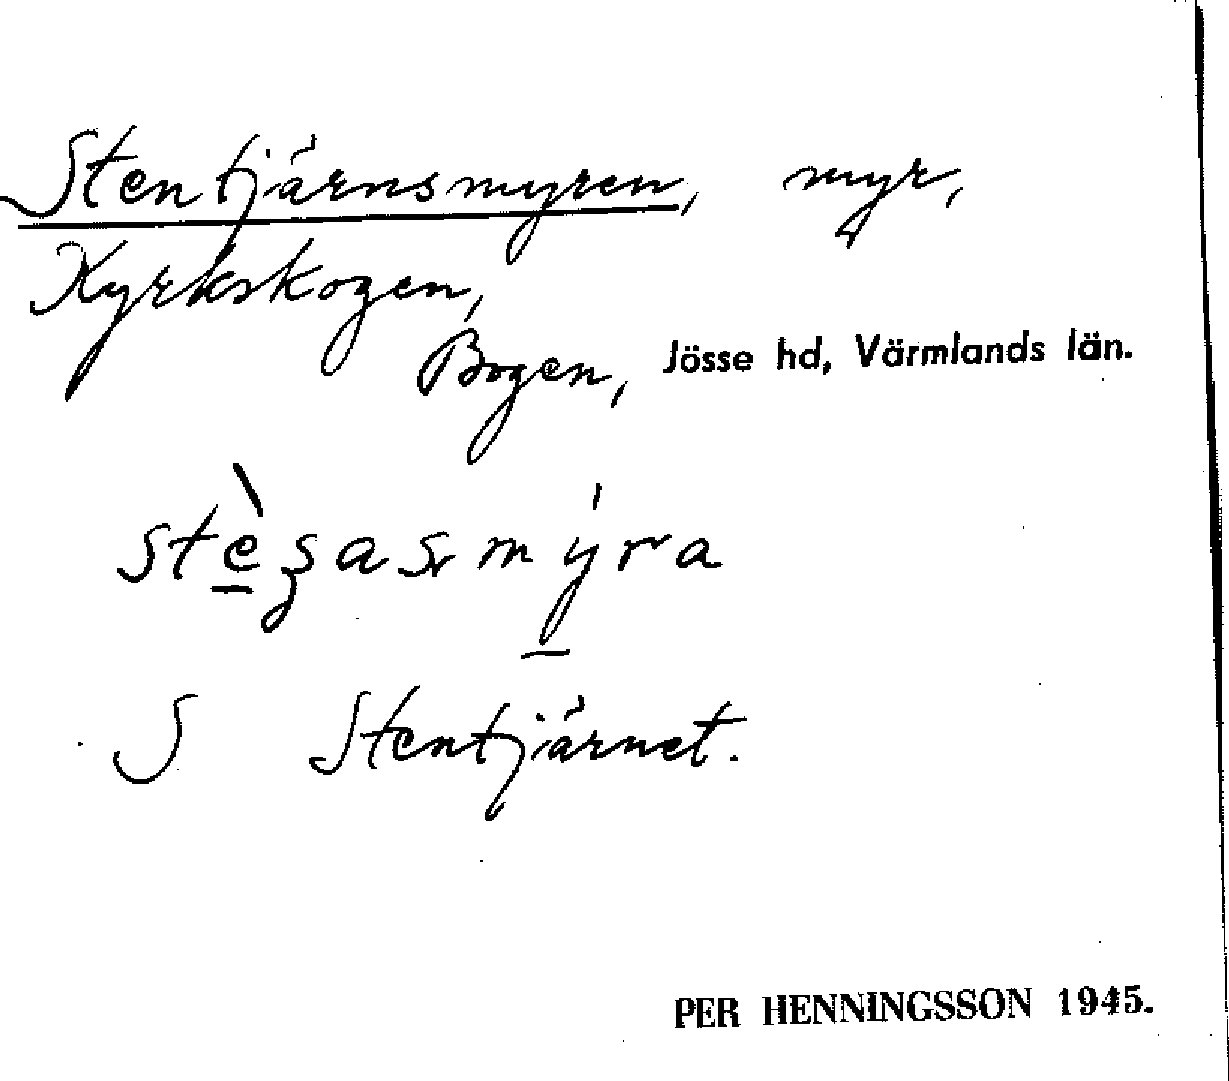 Stentjärnsmyren, myr,
Kyrkskogen,
Bogen, Jösse hd, Värmlands län.
stèʒasmýra
S Stentjärnet.
PER HENNINGSSON 1945.